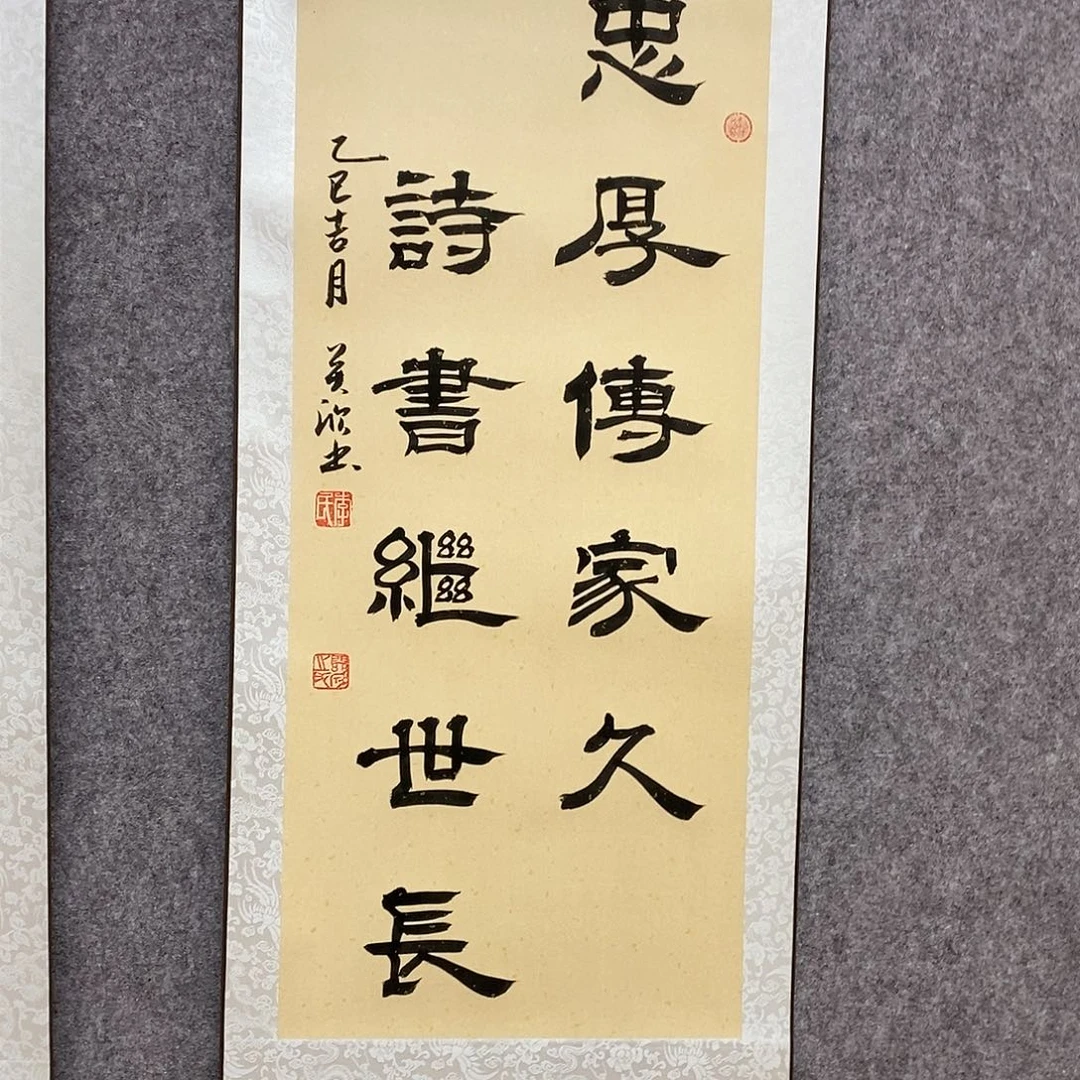 忠厚傳家久
詩書繼世長
乙巳吉月 美欣书